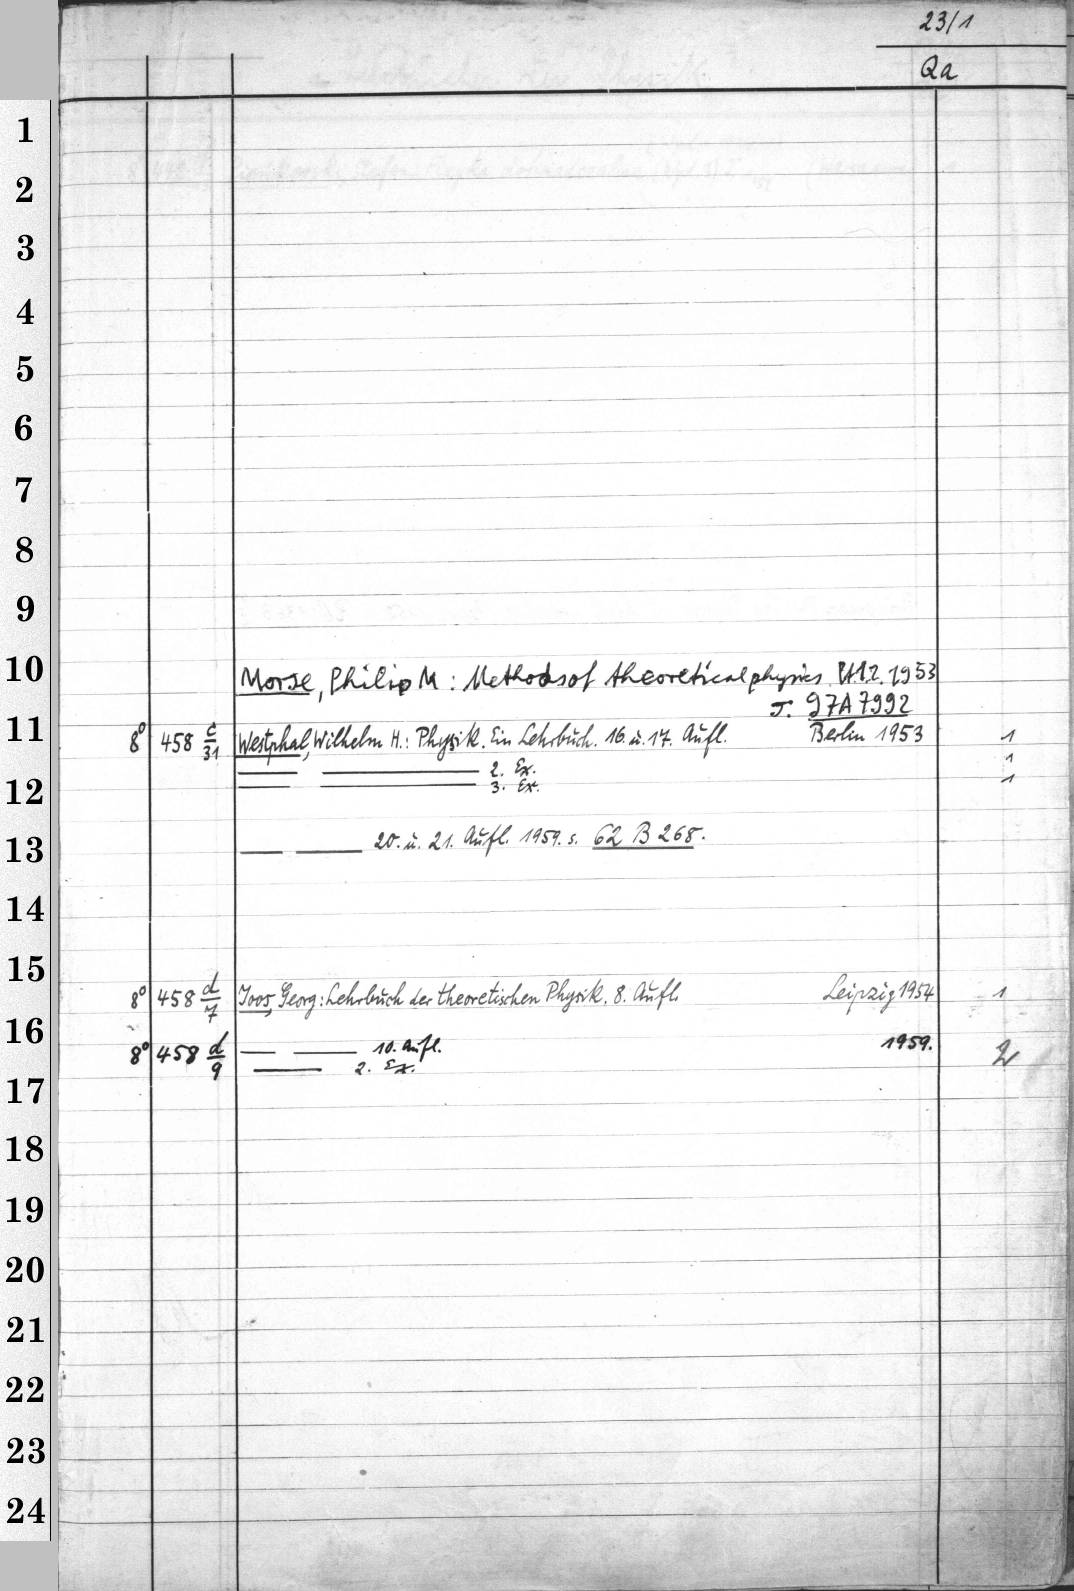 23/1
Qa
1
2
3
4
5
6
7
8
9
10
Morse, Philip M: Methods of theoretical physics. Pt.1.2. 1953
s. 97A7992
11
8° 458 c/31 Westphal, Wilhelm H.: Physik. Ein Lehrbuch. 16. u. 17. Aufl. Berlin 1953 1
2. Ex. 1
12
3. Ex. 1
13
20. u. 21. Aufl. 1959. s. 62 B 268.
14
15
8° 458 d/7 Joos, Georg: Lehrbuch der theoretischen Physik. 8. Aufl. Leipzig 1954 1
16
8° 458 d/9 10. Aufl. 1959. 2
2. Ex.
17
18
19
20
21
22
23
24